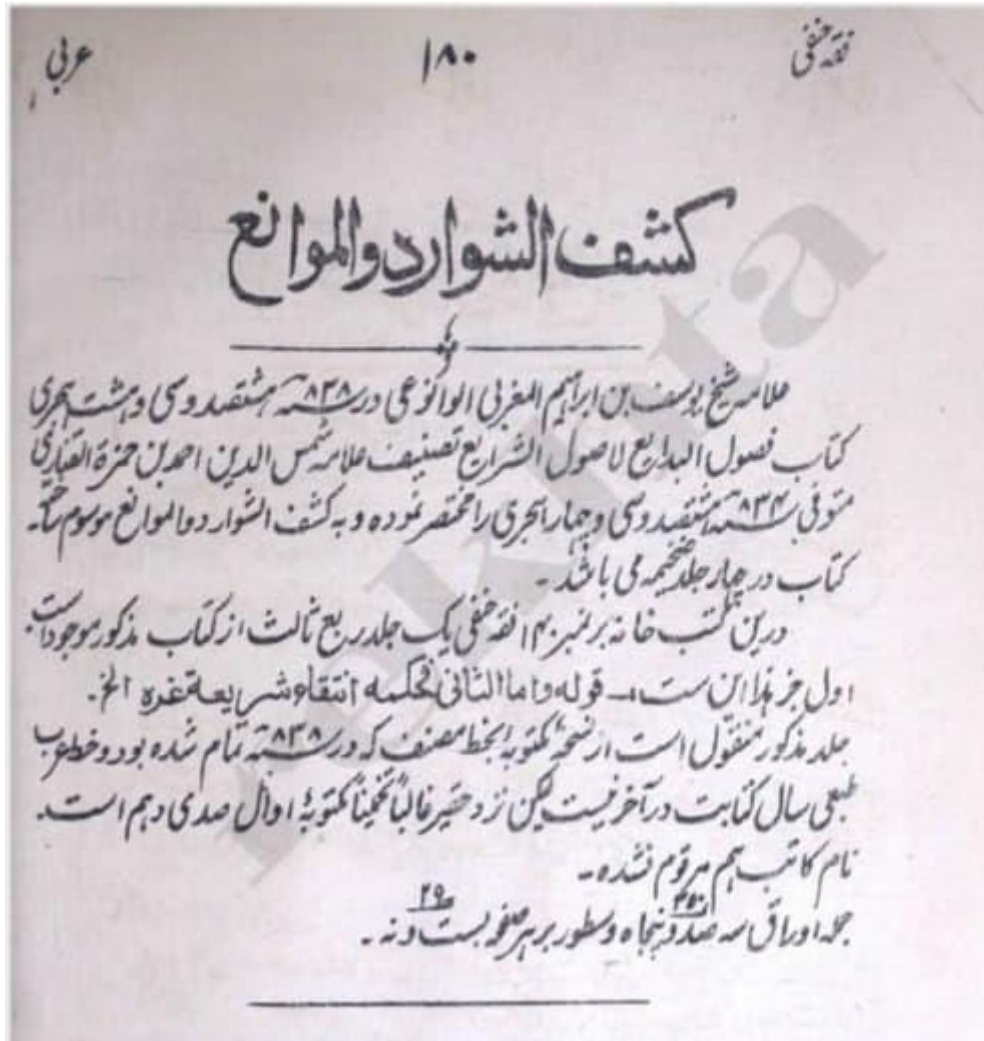 فقہ حنفی ۱۸۰ عربی
کشف الشوارد والموانع
علامہ شیخ یوسف بن ابراہیم المغربی الوانوغی در سنہ ۸۳۸ ہشتصد و سی و ہشت ہجری
کتاب فصول البدایع لاصول الشرایع تصنیف علامہ شمس الدین احمد بن حمزة الفناری
متوفی سنہ ۸۳۴ ہشتصد و سی و چہار ہجری را مختصر نمودہ و بہ کشف الشوارد والموانع موسوم ساختہ۔
کتاب در چہار جلد ضخیمہ می باشد۔
درین کتب خانہ بر نمبر ۱۴۰ فقہ حنفی یک جلد ربع ثالث از کتاب مذکور موجود است
اول جز ہذا این ست۔ قولہ واما الثانی فحکمہ انتقاء شریعة غرہ الخ۔
جلد مذکور منقول است از نسخۂ مکتوبہ بخط مصنف کہ در سنہ ۸۳۸ تمام شدہ بود و خط عرب
طبعی سال کتابت در آخر نیست لیکن نزد حقیر غالباً تخمیناً مکتوبۂ اوائل صدی دہم است۔
نام کاتب ہم مرقوم نشدہ۔
جملہ اوراق سہ صد و پنجاہ ۳۵۰ و سطور بر ہر صفحہ بست و نہ ۲۹۔